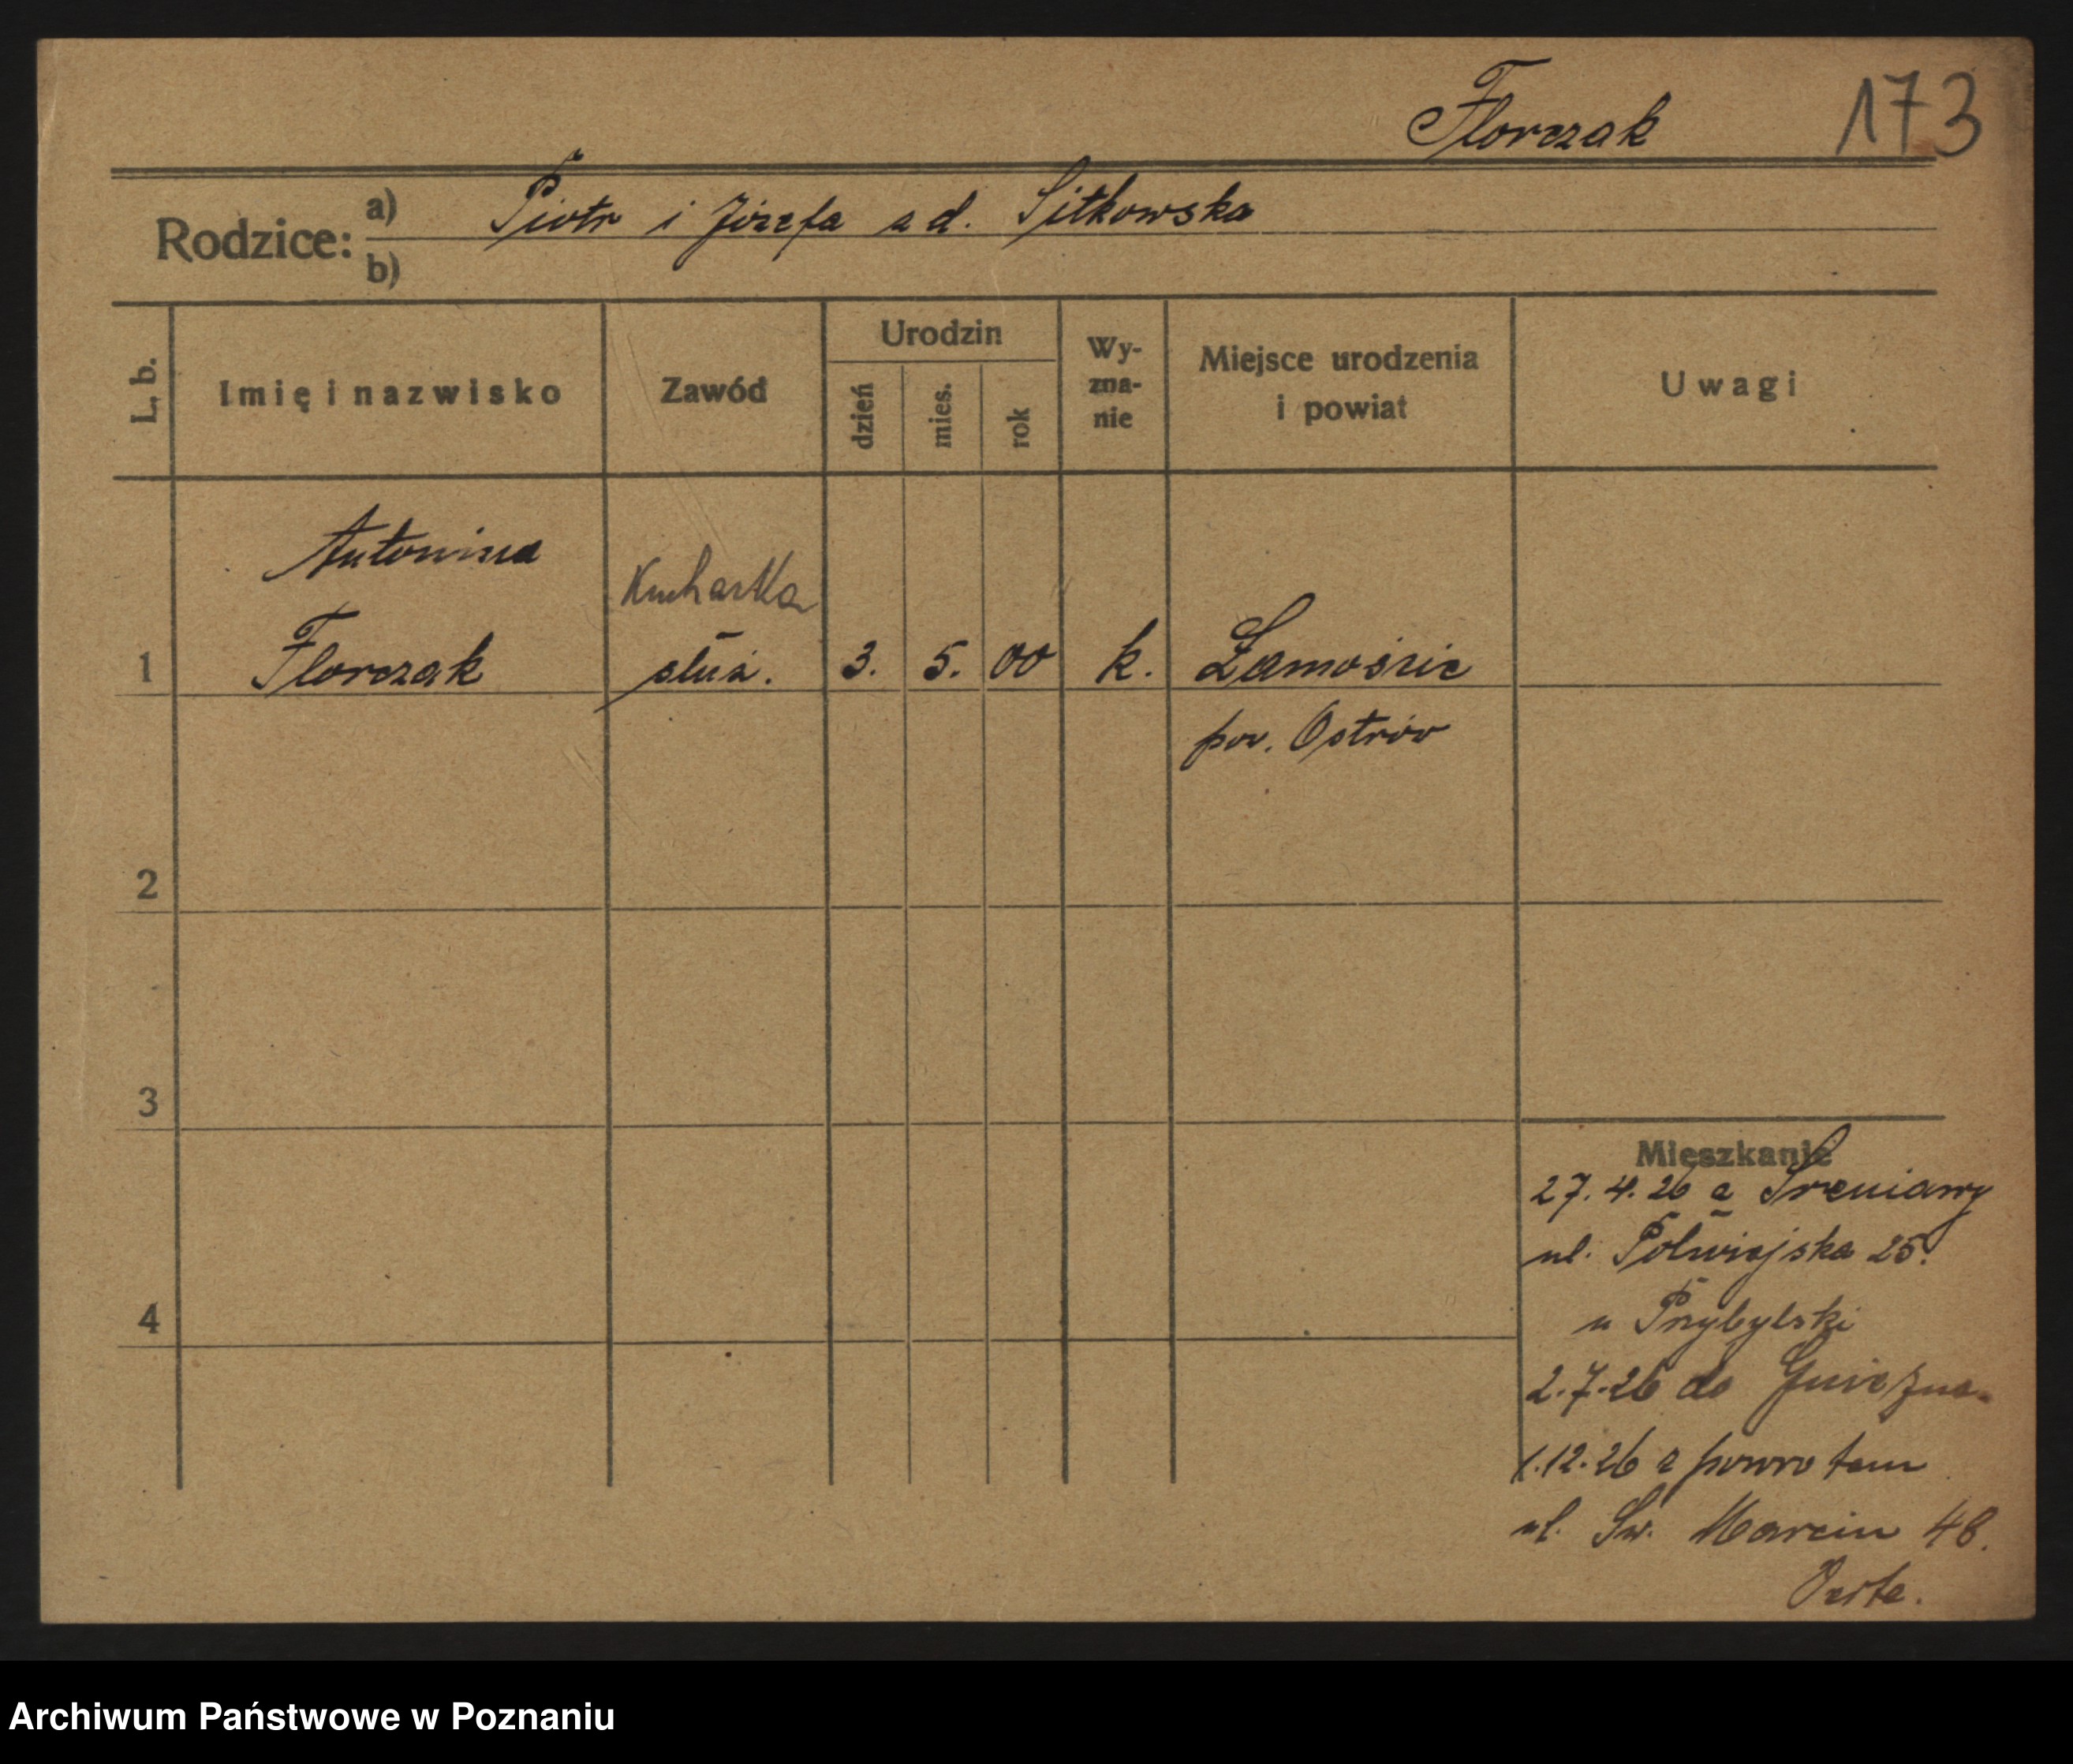 Florczak 173
Rodzice: a) Piotr i Józefa z d. Sitkowska
b)
L. b. Imię i nazwisko Zawód Urodzin dzień mies. rok Wy-zna-nie Miejsce urodzenia i powiat Uwagi
Antonina
Kucharka
1 Florczak służ. 3. 5. 00 k. Zamoście
pow. Ostrów
2
3
Mieszkanie
27. 4. 26 z Śreniawy
ul. Półwiejska 25.
4
u Przybylski
2.7.26 do Gniezna
1.12.26 z powrotem
ul. Św. Marcin 48.
Archiwum Państwowe w Poznaniu